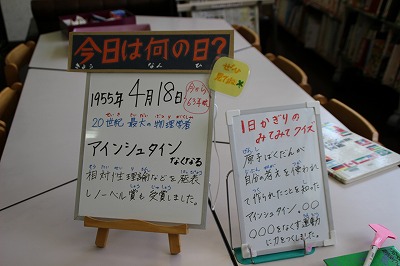 今日は何の日?
きょう なん ひ
ぜひ
見てね
1955年4月18日
20世紀 最大の物理学者
アインシュタイン
なくなる
相対性理論などを発表
しノーベル賞も受賞しました。
1日かぎりの
みてみてクイズ
原子ばくだんが
自分の考えを使われ
て作られたことを知った
アインシュタイン。○○
○○○をなくす運動
に力をつくしました。